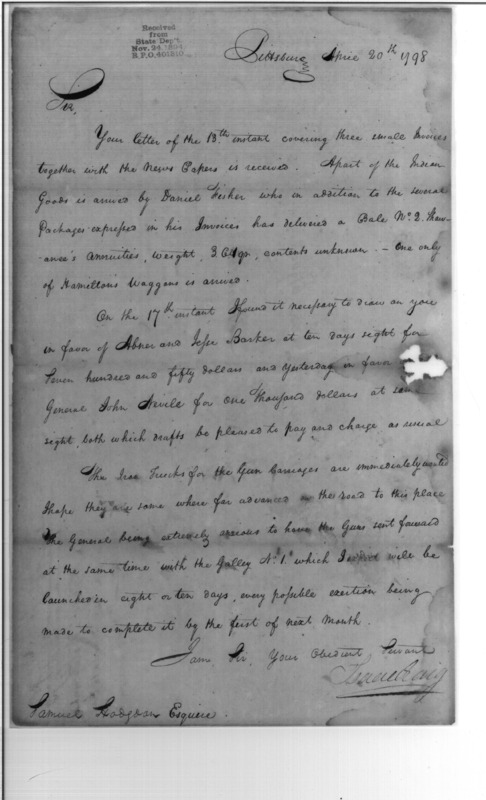 Received
from
State Dep't.
Nov. 24, 1894
R.P.O. 401810
Pittsburg April 20th 1798
Sir,
Your letter of the 13th instant covering three small Invoices
together with the News Papers is received. Apart of the Indian
Goods is arrived by Daniel Fesher who in addition to the several
Packages expressed in his Invoices has delivered a Bale No. 2.
Annuities, Weight, contents unknown. — One only
of Hamiltons Waggons is arrived.
On the 17th instant I found it necessary to draw on you
in favor of Abner and Jesse Barker at ten days sight for
Seven hundred and fifty dollars and yesterday in favor
General John Nevile for One Thousand dollars at same
sight, both which drafts be pleased to pay and charge as usual
The Iron Trucks for the Gun Carriages are immediately wanted
I hope they are some where far advanced on the road to this place
The General being extremely anxious to have the Guns sent forward
at the same time with the Galley No. 1. which I will be
Launched in eight or ten days, every possible exertion being
made to complete it by the first of next Month.
I am Sir, Your Obedient Servant
Isaac Craig
Samuel Hodgdon Esquire.